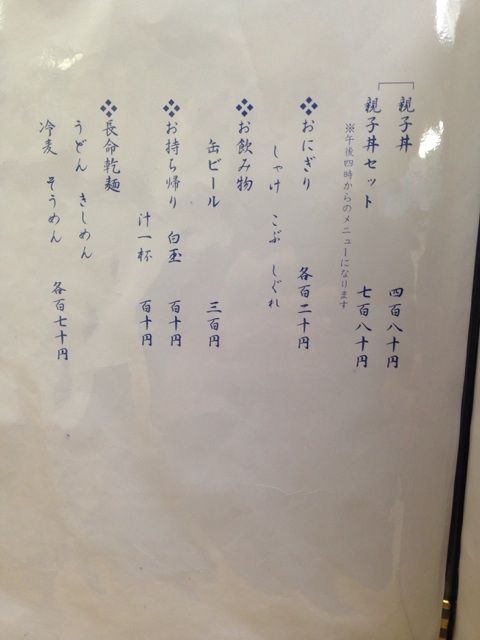 親子丼 四百八十円
親子丼セット 七百八十円
※午後四時からのメニューになります
❖おにぎり 各百二十円
しゃけ こぶ しぐれ
❖お飲み物
缶ビール 三百円
❖お持ち帰り 白玉 百十円
汁一杯 百十円
❖長命乾麺
うどん きしめん
冷麦 そうめん 各百七十円